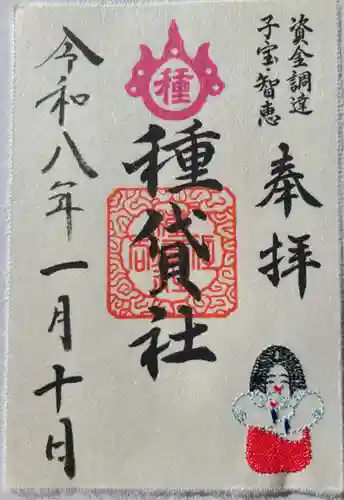 資金調達
子宝智恵
奉拝
種
種貸社
令和八年一月十日